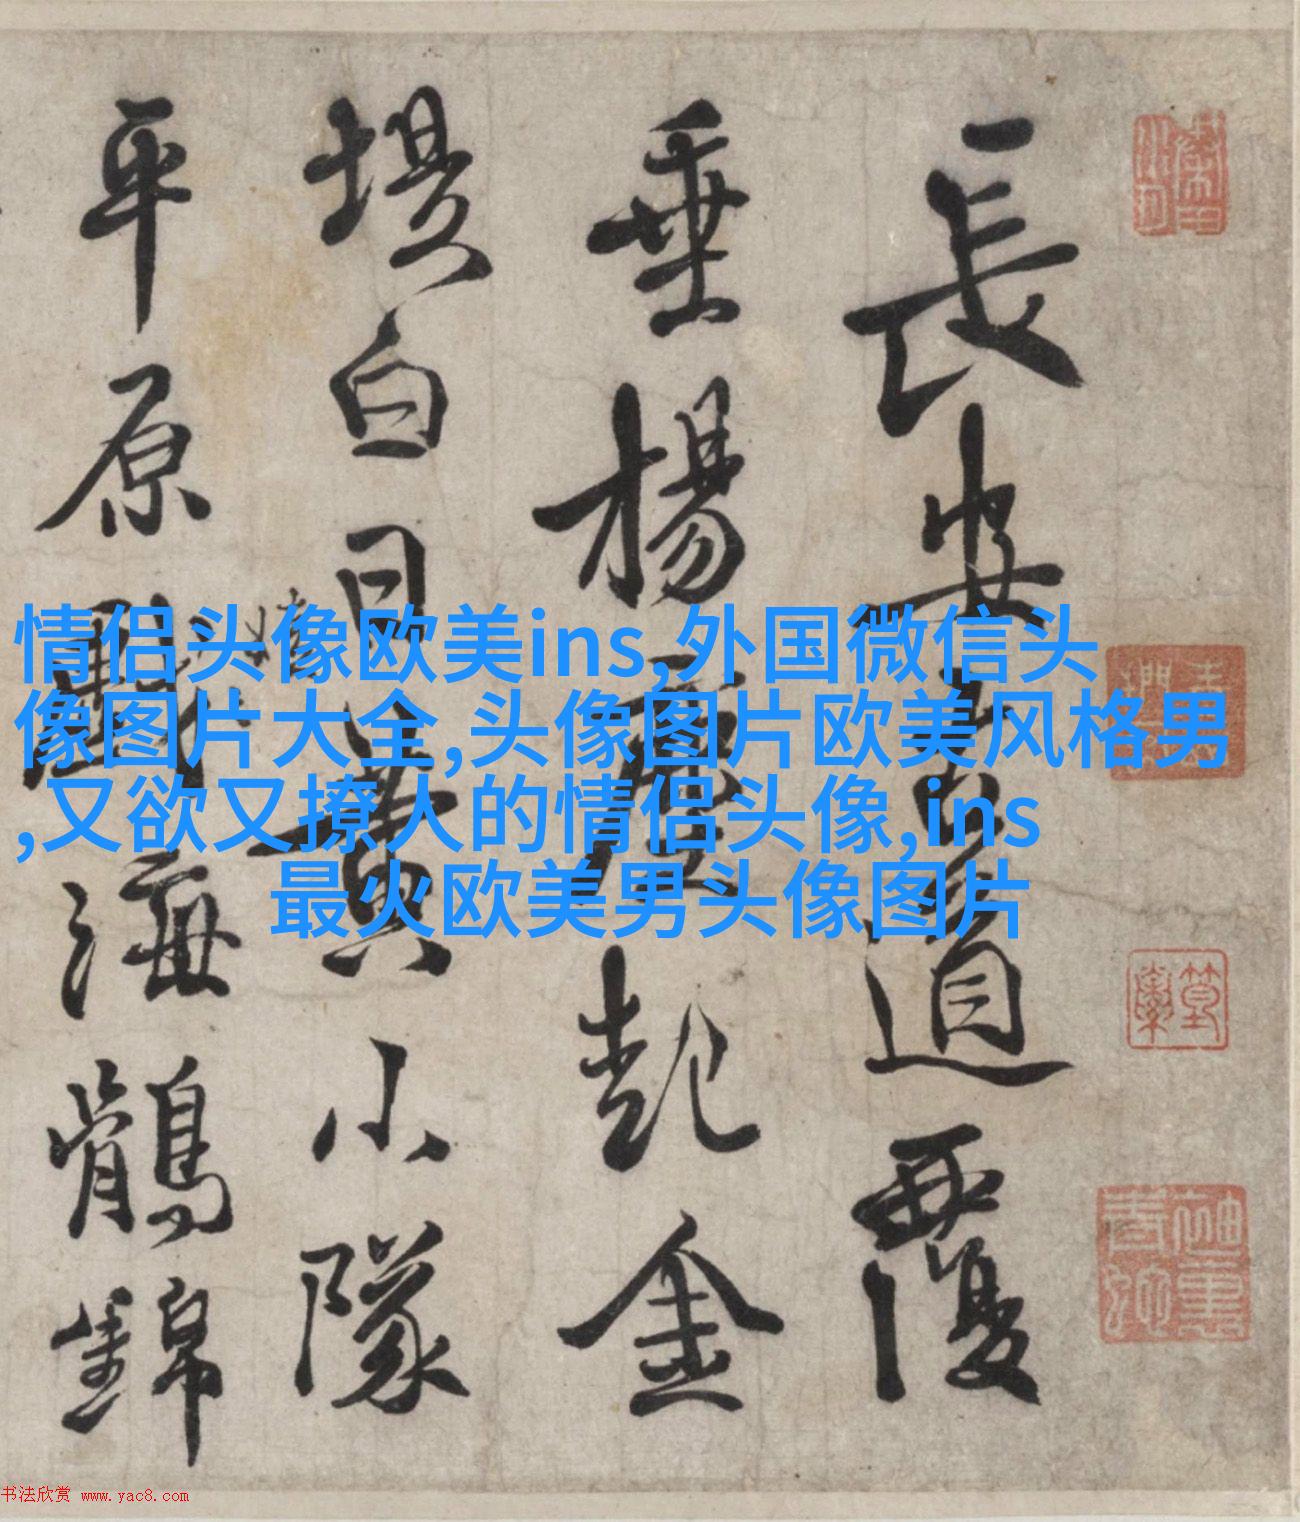 長安古道覆
垂楊塵起金
堤白日黃小隊
平原海鶻錦
情侣头像欧美ins,外国微信头
像图片大全,头像图片欧美风格男
,又欲又撩人的情侣头像,ins
最火欧美男头像图片
书法欣赏 www.yac8.com